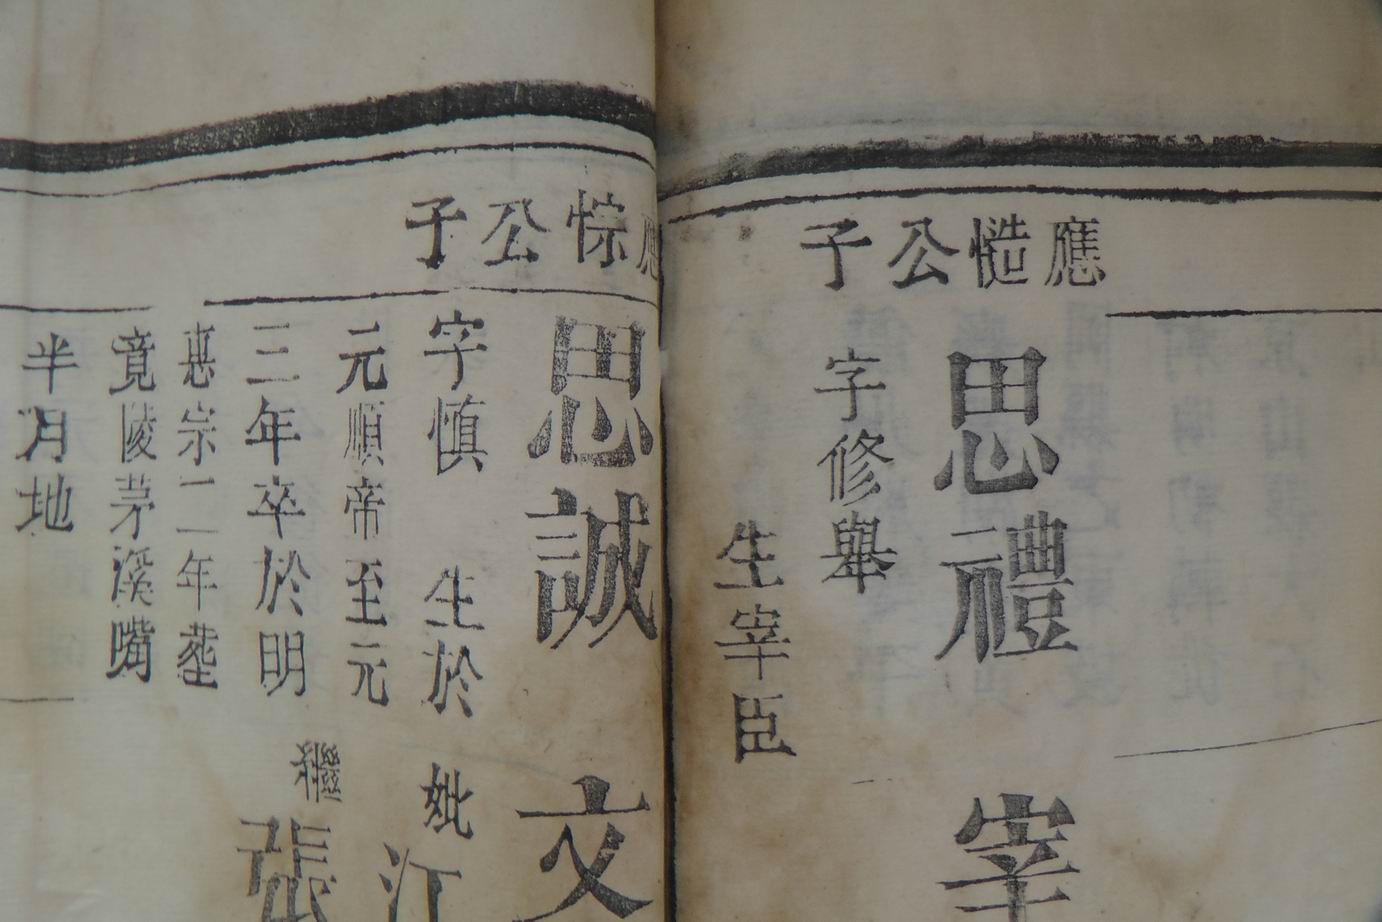 應慥公子
思禮 宰
字修舉
生宰臣
應悰公子
思誠 文
字慎 生於 妣江
元順帝至元
三年卒於明 繼張
惠宗二年葬
竟陵茅溪嘴
半月地